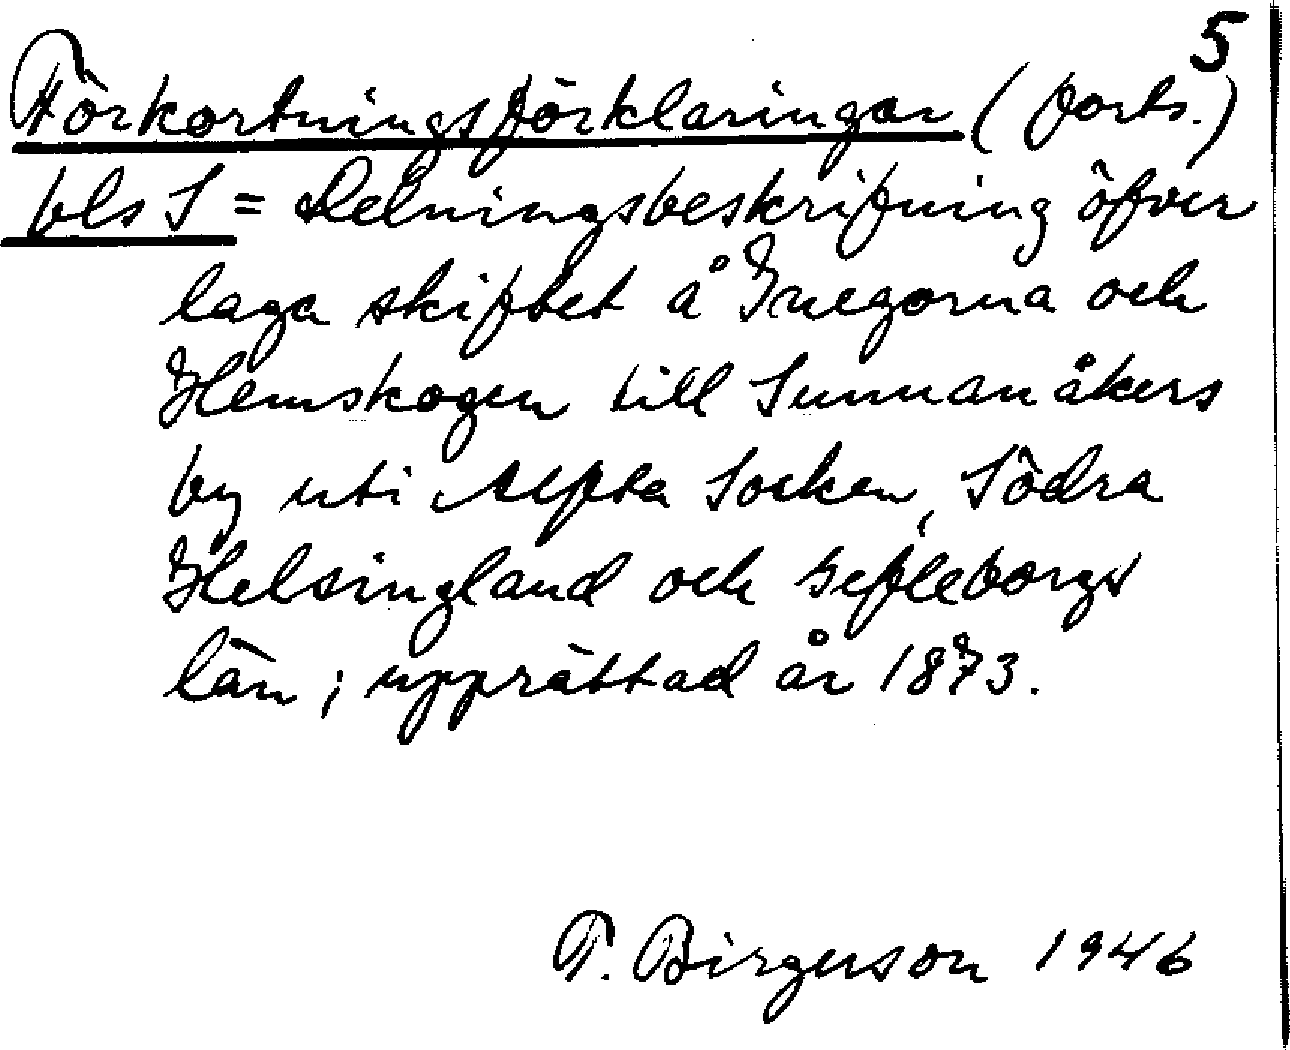 5
Förkortningsförklaringar (forts.)
bls S = Delningsbeskrifning öfver
laga skiftet å Inegorna och
Hemskogen till Sunnanåkers
by uti Alfta Socken, Södra
Helsingland och Gefleborgs
län; upprättad år 1873.
T. Birgerson 1946